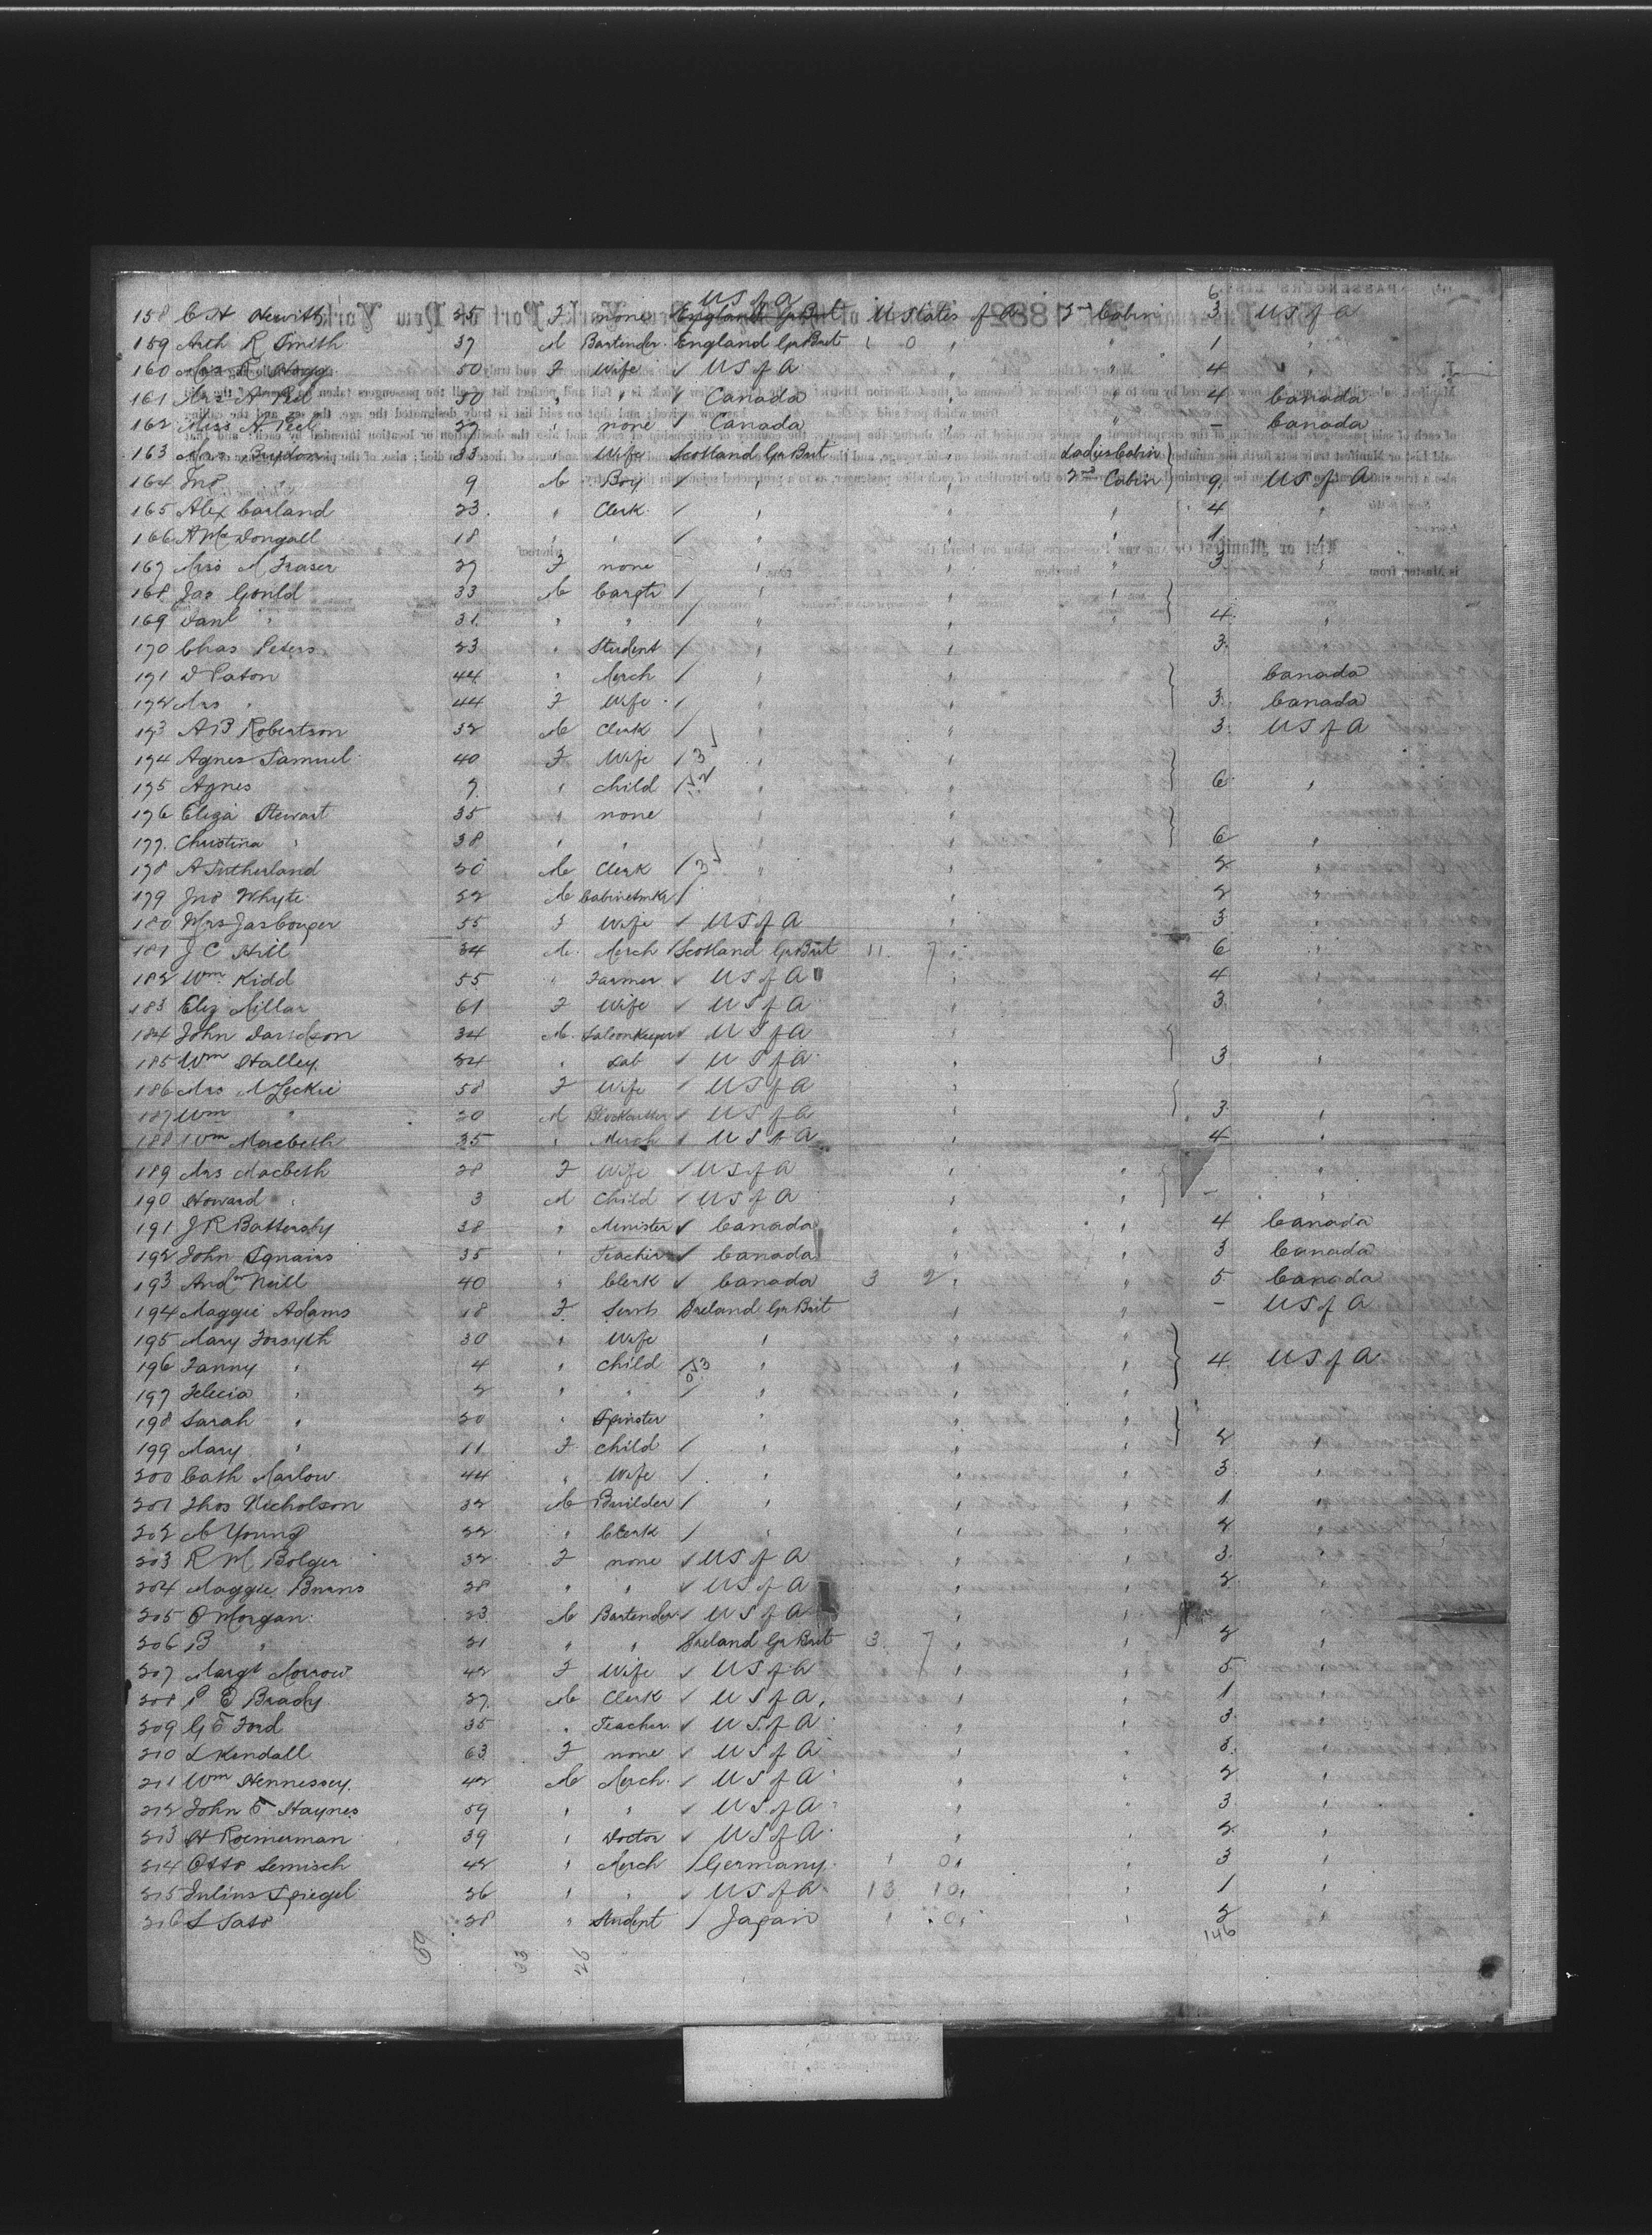 158 C H Hewitt 25 F none USofA England Gr Brit U States of A 2nd Cabin 3 US of A
159 Arth R Smith 37 M Bartender England Gr Brit 1 0 " " 1 "
160 Mrs R Hogg 50 F Wife ✓ US of A " " 4 "
161 Mrs A Peel 50 " " ✓ Canada " " 4 Canada
162 Miss A. Peel 27 " none ✓ Canada " " – Canada
163 Mrs Brydon 33 " Wife Scotland Gr Brit " Ladies Cabin }
164 Jno " 9 M Boy / " " 2nd Cabin } 9 US of A
165 Alex Carland 23 " Clerk / " " " 4 "
166 A McDougall 18 " " / " " " 1 "
167 Miss M Fraser 27 F none " " " 3 "
168 Jas Gould 33 M Cargtr / " " " }
169 Danl " 31 " " / " " " } 4 "
170 Chas Peters 23 " Student / " " " 3 "
171 D Paton 44 " Merch / " " " } Canada
172 Mrs " 44 F Wife / " " " } 3 Canada
173 A B Robertson 32 M Clerk / " " " 3 US of A
174 Agnes Samuel 40 F Wife / 3 " " " }
175 Agnes 7 " child / " " " } 6 "
176 Eliza Stewart 35 " none " " " }
177 Christina " 38 " " " " " } 6 "
178 A Sutherland 20 M Clerk / 3 " " " 2 "
179 Jno Whyte 52 M Cabinetmkr / " " " 2 "
180 Mrs Jas Couper 55 F Wife ✓ US of A " " 3 "
181 J C Hill 34 M Merch / Scotland Gr Brit 11 7 " " 6 "
182 Wm Kidd 55 " Farmer ✓ US of A " " 4 "
183 Eliz Millar 61 F Wife ✓ US of A " " 3 "
184 John Davidson 34 M Saloonkeeper ✓ US of A " " }
185 Wm Halley 24 " Lab ✓ US of A " " } 3 "
186 Mrs M Leckie 58 F Wife ✓ US of A " " }
187 Wm " 20 M Blockcutter ✓ US of A " " } 3 "
188 Wm Macbeth 35 " Merch ✓ US of A " 4 "
189 Mrs Macbeth 28 F Wife ✓ US of A " " } "
190 Howard " 3 M Child ✓ US of A " " } – "
191 J R Battersby 38 " Minister ✓ Canada " " 4 Canada
192 John Squairs 35 " Teacher ✓ Canada " " 3 Canada
193 Andw Neill 40 " Clerk ✓ Canada 3 2 " " 5 Canada
194 Maggie Adams 18 F Servt Ireland Gr Brit " " – US of A
195 Mary Forsyth 30 " Wife " " " }
196 Fanny " 4 " child / 3 " " " } 4 US of A
197 Felecia " 2 " " / " " " }
198 Sarah " 20 " Spinster " " " }
199 Mary " 11 F child / " " " } 2 "
200 Cath Marlow 44 " Wife / " " " 3 "
201 Thos Nicholson 32 M Builder / " " " 1 "
202 M Young 22 " Clerk / " " " 2 "
203 R M Bolger 32 F none ✓ US of A " " 3 "
204 Maggie Burns 28 " " ✓ US of A " " 2 "
205 O Morgan 23 M Bartender ✓ US of A " " }
206 B " 21 " " Ireland Gr Brit 3 7 " " 2 "
207 Margt Morrow 42 F Wife ✓ US of A " " 5 "
208 P E Brady 27 M Clerk ✓ US of A " " 1 "
209 G E Ford 35 " Teacher ✓ US of A " " 3 "
210 L Kendall 63 F none ✓ US of A " " 3 "
211 Wm Hennessey 42 M Merch ✓ US of A " " 2 "
212 John E Haynes 59 " " ✓ US of A " " 3 "
213 H Roemerman 39 " Doctor ✓ US of A " " 2 "
214 Otto Semisch 42 " Merch / Germany 1 0 " " 3 "
215 Julius Spiegel 36 " " ✓ US of A 13 10 " " 1 "
216 S Sato 28 " Student / Japan 1 0 " " 2 "
146
59 33 26